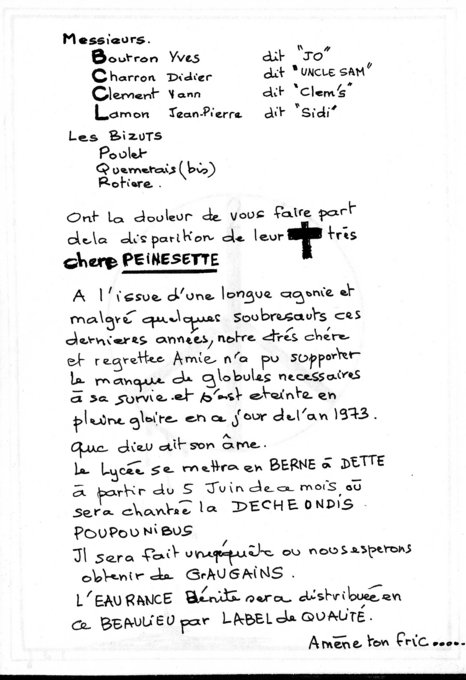 Messieurs.
Boutron Yves dit "JO"
Charron Didier dit "UNCLE SAM"
Clement Yann dit "Clem's"
Lamon Jean-Pierre dit "Sidi"
Les BIZUTS
Poulet
Quemerais (bis)
Rotiere.
Ont la douleur de vous faire part
dela disparition de leur très
chere PEINESETTE
A l'issue d'une longue agonie et
malgré quelques soubresauts ces
dernieres années, notre trés chére
et regrettee Amie n'a pu supporter
le manque de globules necessaires
à sa survie et s'est eteinte en
pleine gloire en ce jour de l'an 1973.
Que dieu ait son âme.
Le Lycée se mettra en BERNE à DETTE
à partir du 5 Juin de ce mois, où
sera chantée la DECHE ONDIS
POUPOUNIBUS
Il sera fait une quête ou nous esperons
obtenir de GrAUGAINS.
L'EAURANCE Bénite sera distribuée en
ce BEAULIEU par LABEL de QUALITÉ.
Amène ton fric.....